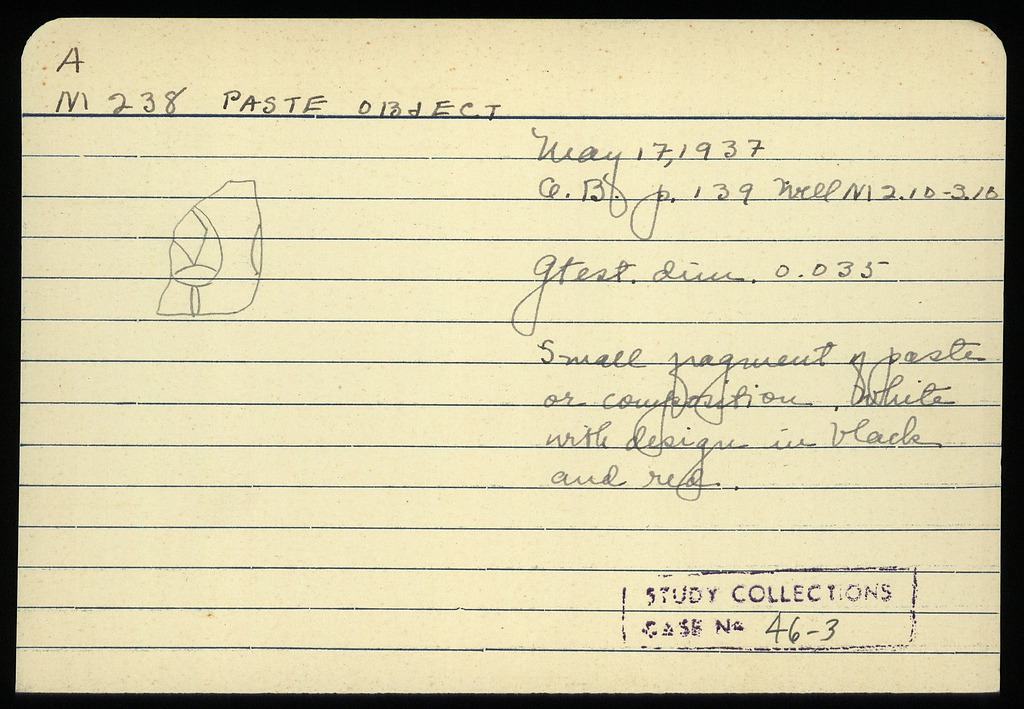 A
M 238 PASTE OBJECT
May 17, 1937
G.B. p. 139 Well M 2.10-3.10
Gtest. dim. 0.035
Small fragment of paste
or composition. White
with design in black
and red.
STUDY COLLECTIONS
CASE No 46-3